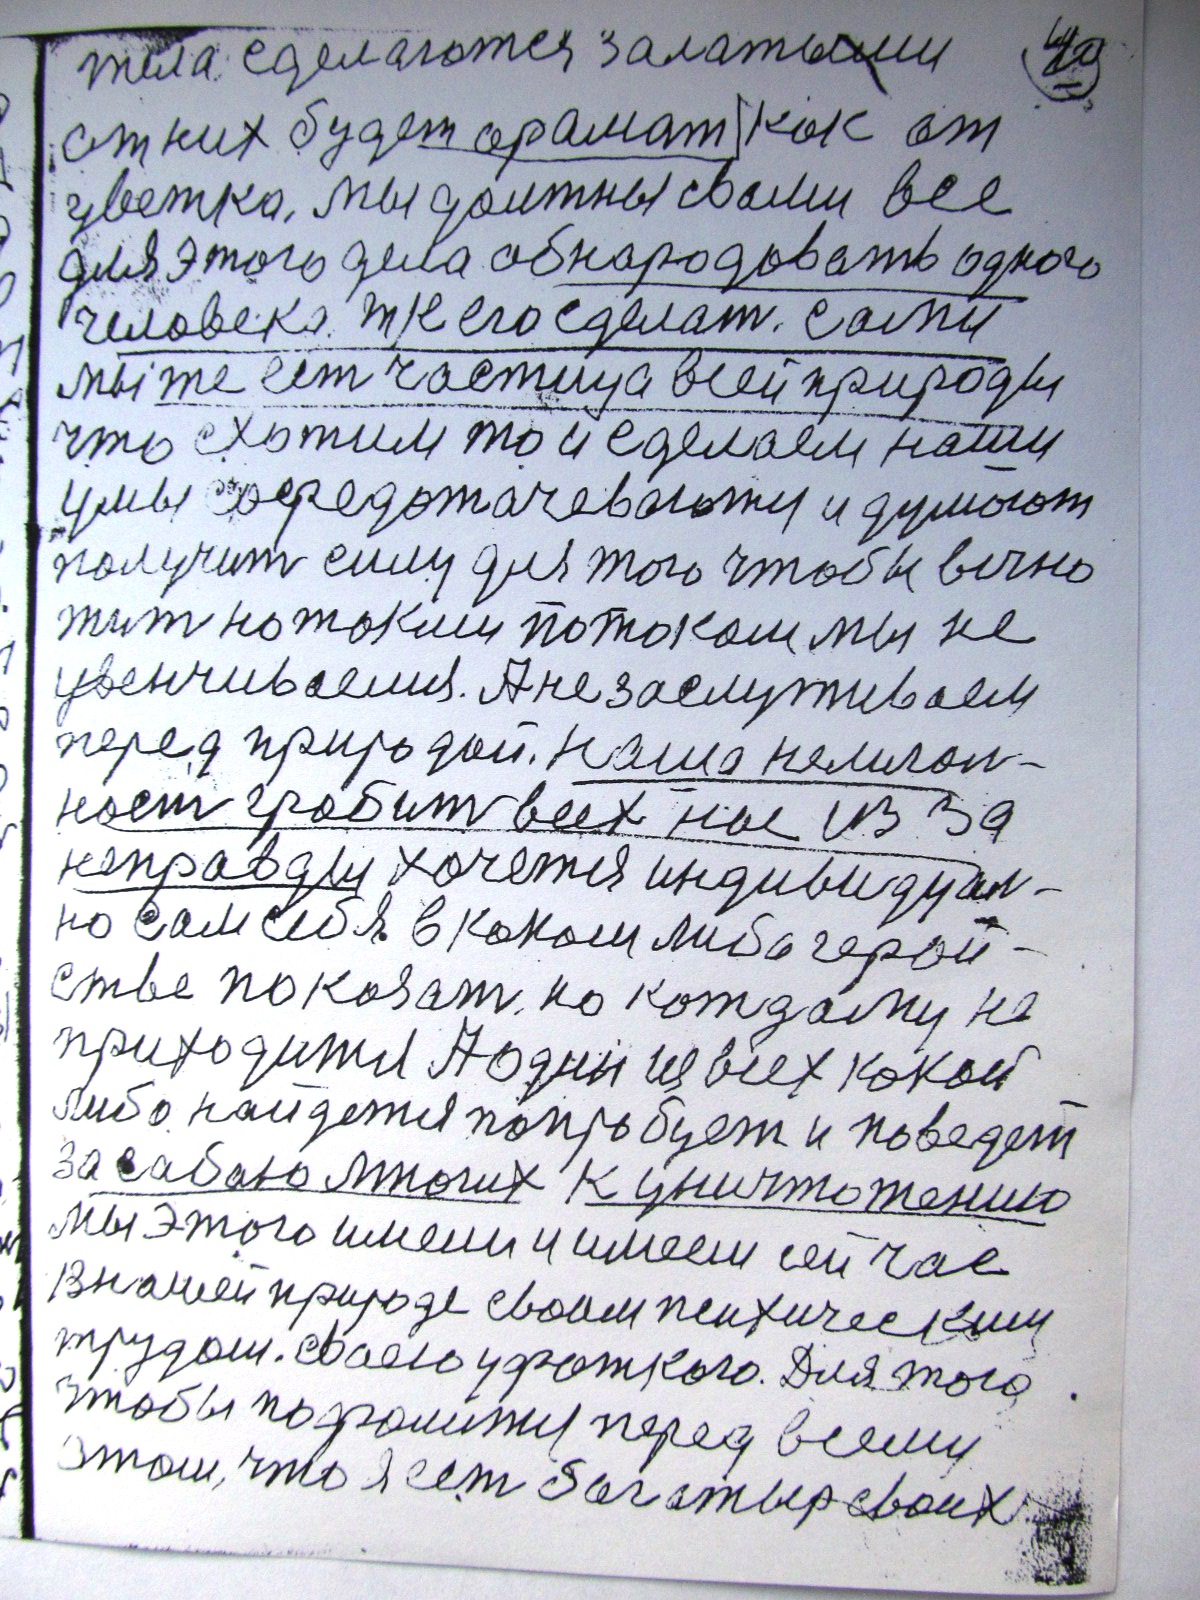 тела сделаготся залатыми 40
от них будет арамат как от
цветка. мы должны свами все
для этого дела обнародовать одного
человека. Т К его сделат. сами
мы же ест частица всей природы
что схотим то и сделаем наши
умы сосредотачеваготы и думагот
получит силу для того чтобы вечно
жит но токим потоком мы не
увенчиваемся. А не заслуживаем
перед природой. наша немгол-
ност гробит всех нас из за
неправды хочется индивидуал-
но сам себя в каком либо герой-
стве показат. но каждому не
приходится А один из всех какой
либо найдется попробует и поведет
за сабаю многих к уничтожению
мы этого имели и имеем сей час
В нашей природе своим психическим
трудом. сваего урожкого. Для того
чтобы пофалится перед всеми
этом, что я ест богатыр своих